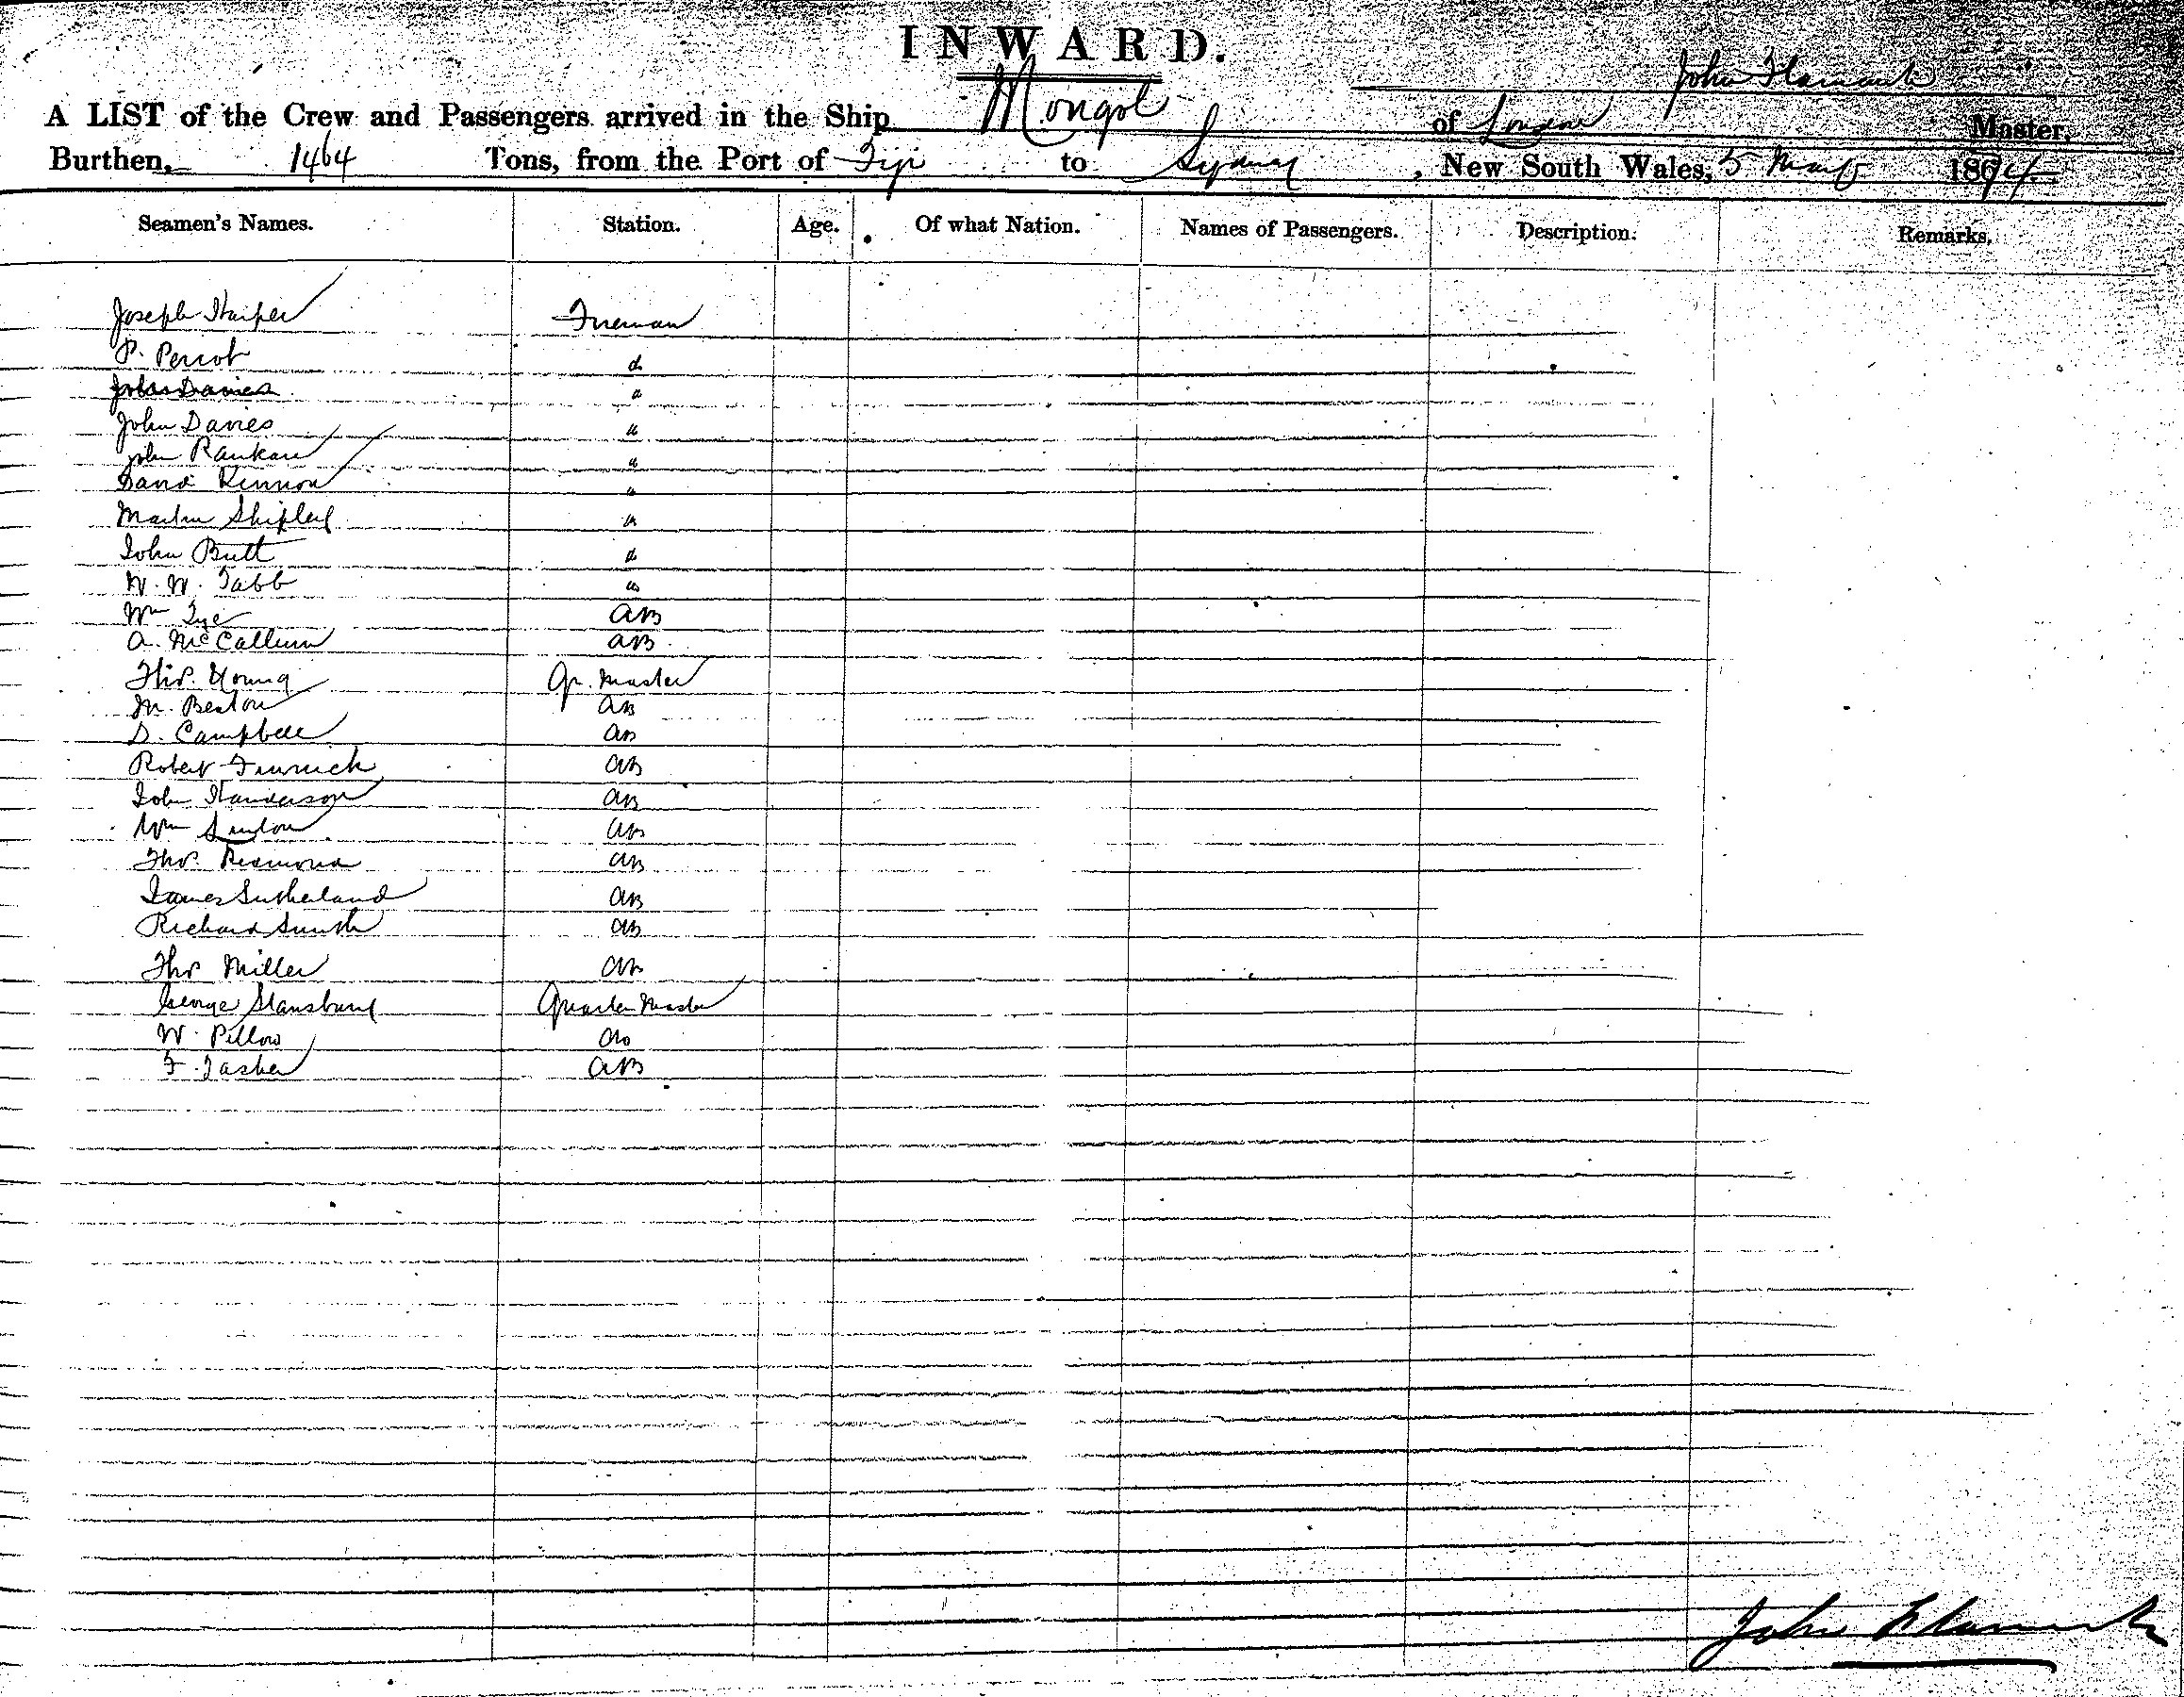 INWARD.
John Flamank
A LIST of the Crew and Passengers arrived in the Ship Mongol of London Master,
Burthen, 1464 Tons, from the Port of Fiji to Sydney, New South Wales, 5 May 1874
Seamen's Names. Station. Age. Of what Nation. Names of Passengers. Description. Remarks.
Joseph Harper Fireman
P. Perrot d
John Davies "
John Davies "
John Rankan "
David Kennon "
Martin Shipley "
John Butt d
W. W. Tabb "
Wm Tye AB
A. McCallum AB
Thos. Young Qr. Master
M. Beaton AB
D. Campbell AB
Robert Fenwick AB
John Handerson AB
Wm AB
Thos. Redmond AB
James Sutherland AB
Richard Smith AB
Thos Miller AB
George Stansbury Quarter Master
W. Pillow do
F. Tasker AB
John Flamank